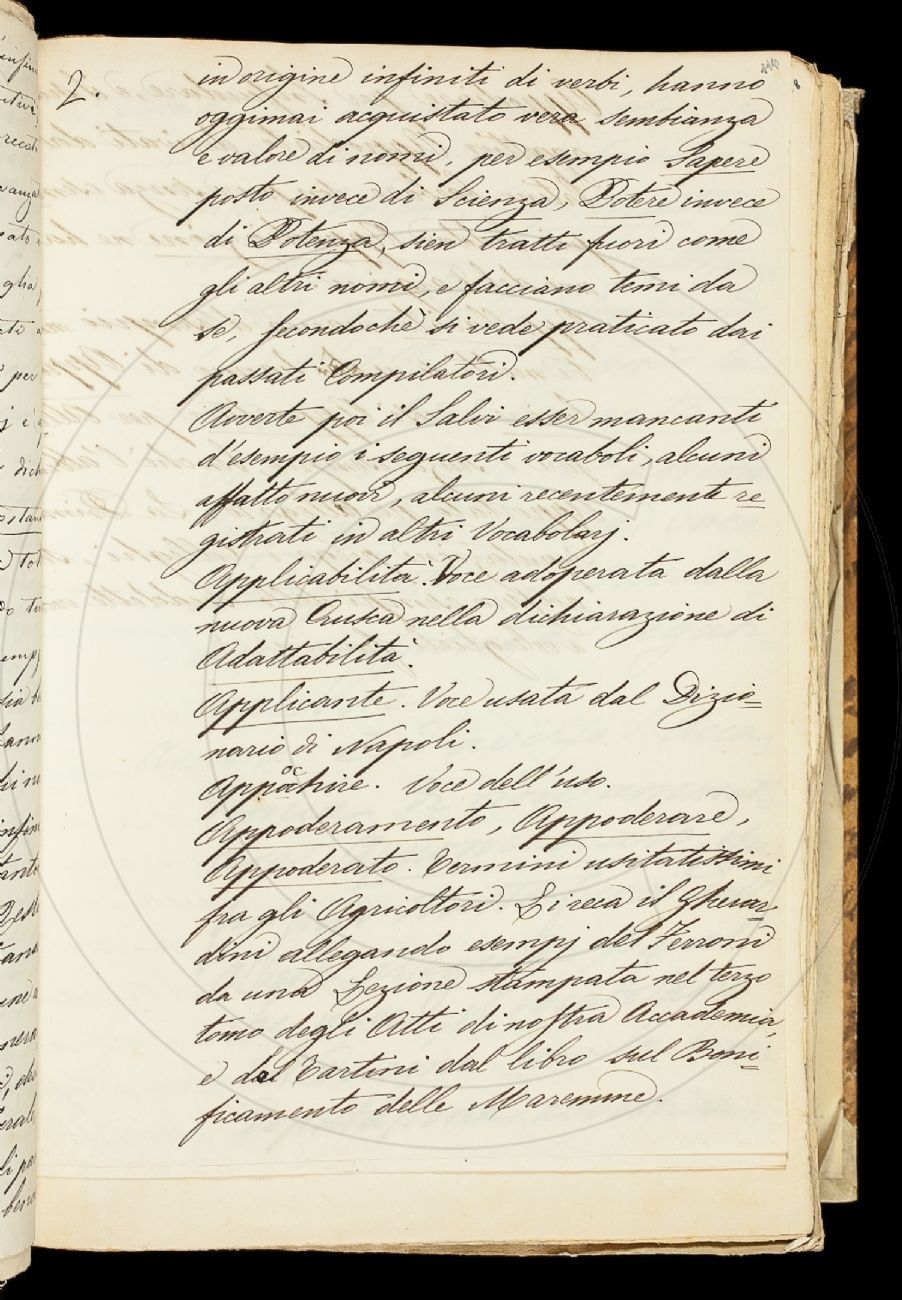 2.
in origine infiniti di verbi, hanno
oggimai acquistato vera sembianza
e valore di nomi, per esempio Sapere
posto invece di Scienza, Potere invece
di Potenza, sien tratti fuori come
gli altri nomi, e facciano temi da
se, secondochè si vede praticato dai
passati Compilatori.
Avverte poi il Salvi esser mancanti
d'esempio i seguenti vocaboli, alcuni
affatto nuovi, alcuni recentemente re=
gistrati in altri Vocabolarj.
Applicabilità. Voce adoperata dalla
nuova Crusca nella dichiarazione di
Adattabilità.
Applicante. Voce usata dal Dizio=
nario di Napoli.
Appochire. Voce dell'uso.
Appoderamento, Appoderare,
Appoderato. Termini usitatissimi
fra gli Agricoltori. Li reca il Gherar=
dini allegando esempj del Ferroni
da una Lezione stampata nel terzo
tomo degli Atti di nostra Accademia,
e del Tartini dal libro sul Boni=
ficamento delle Maremme.